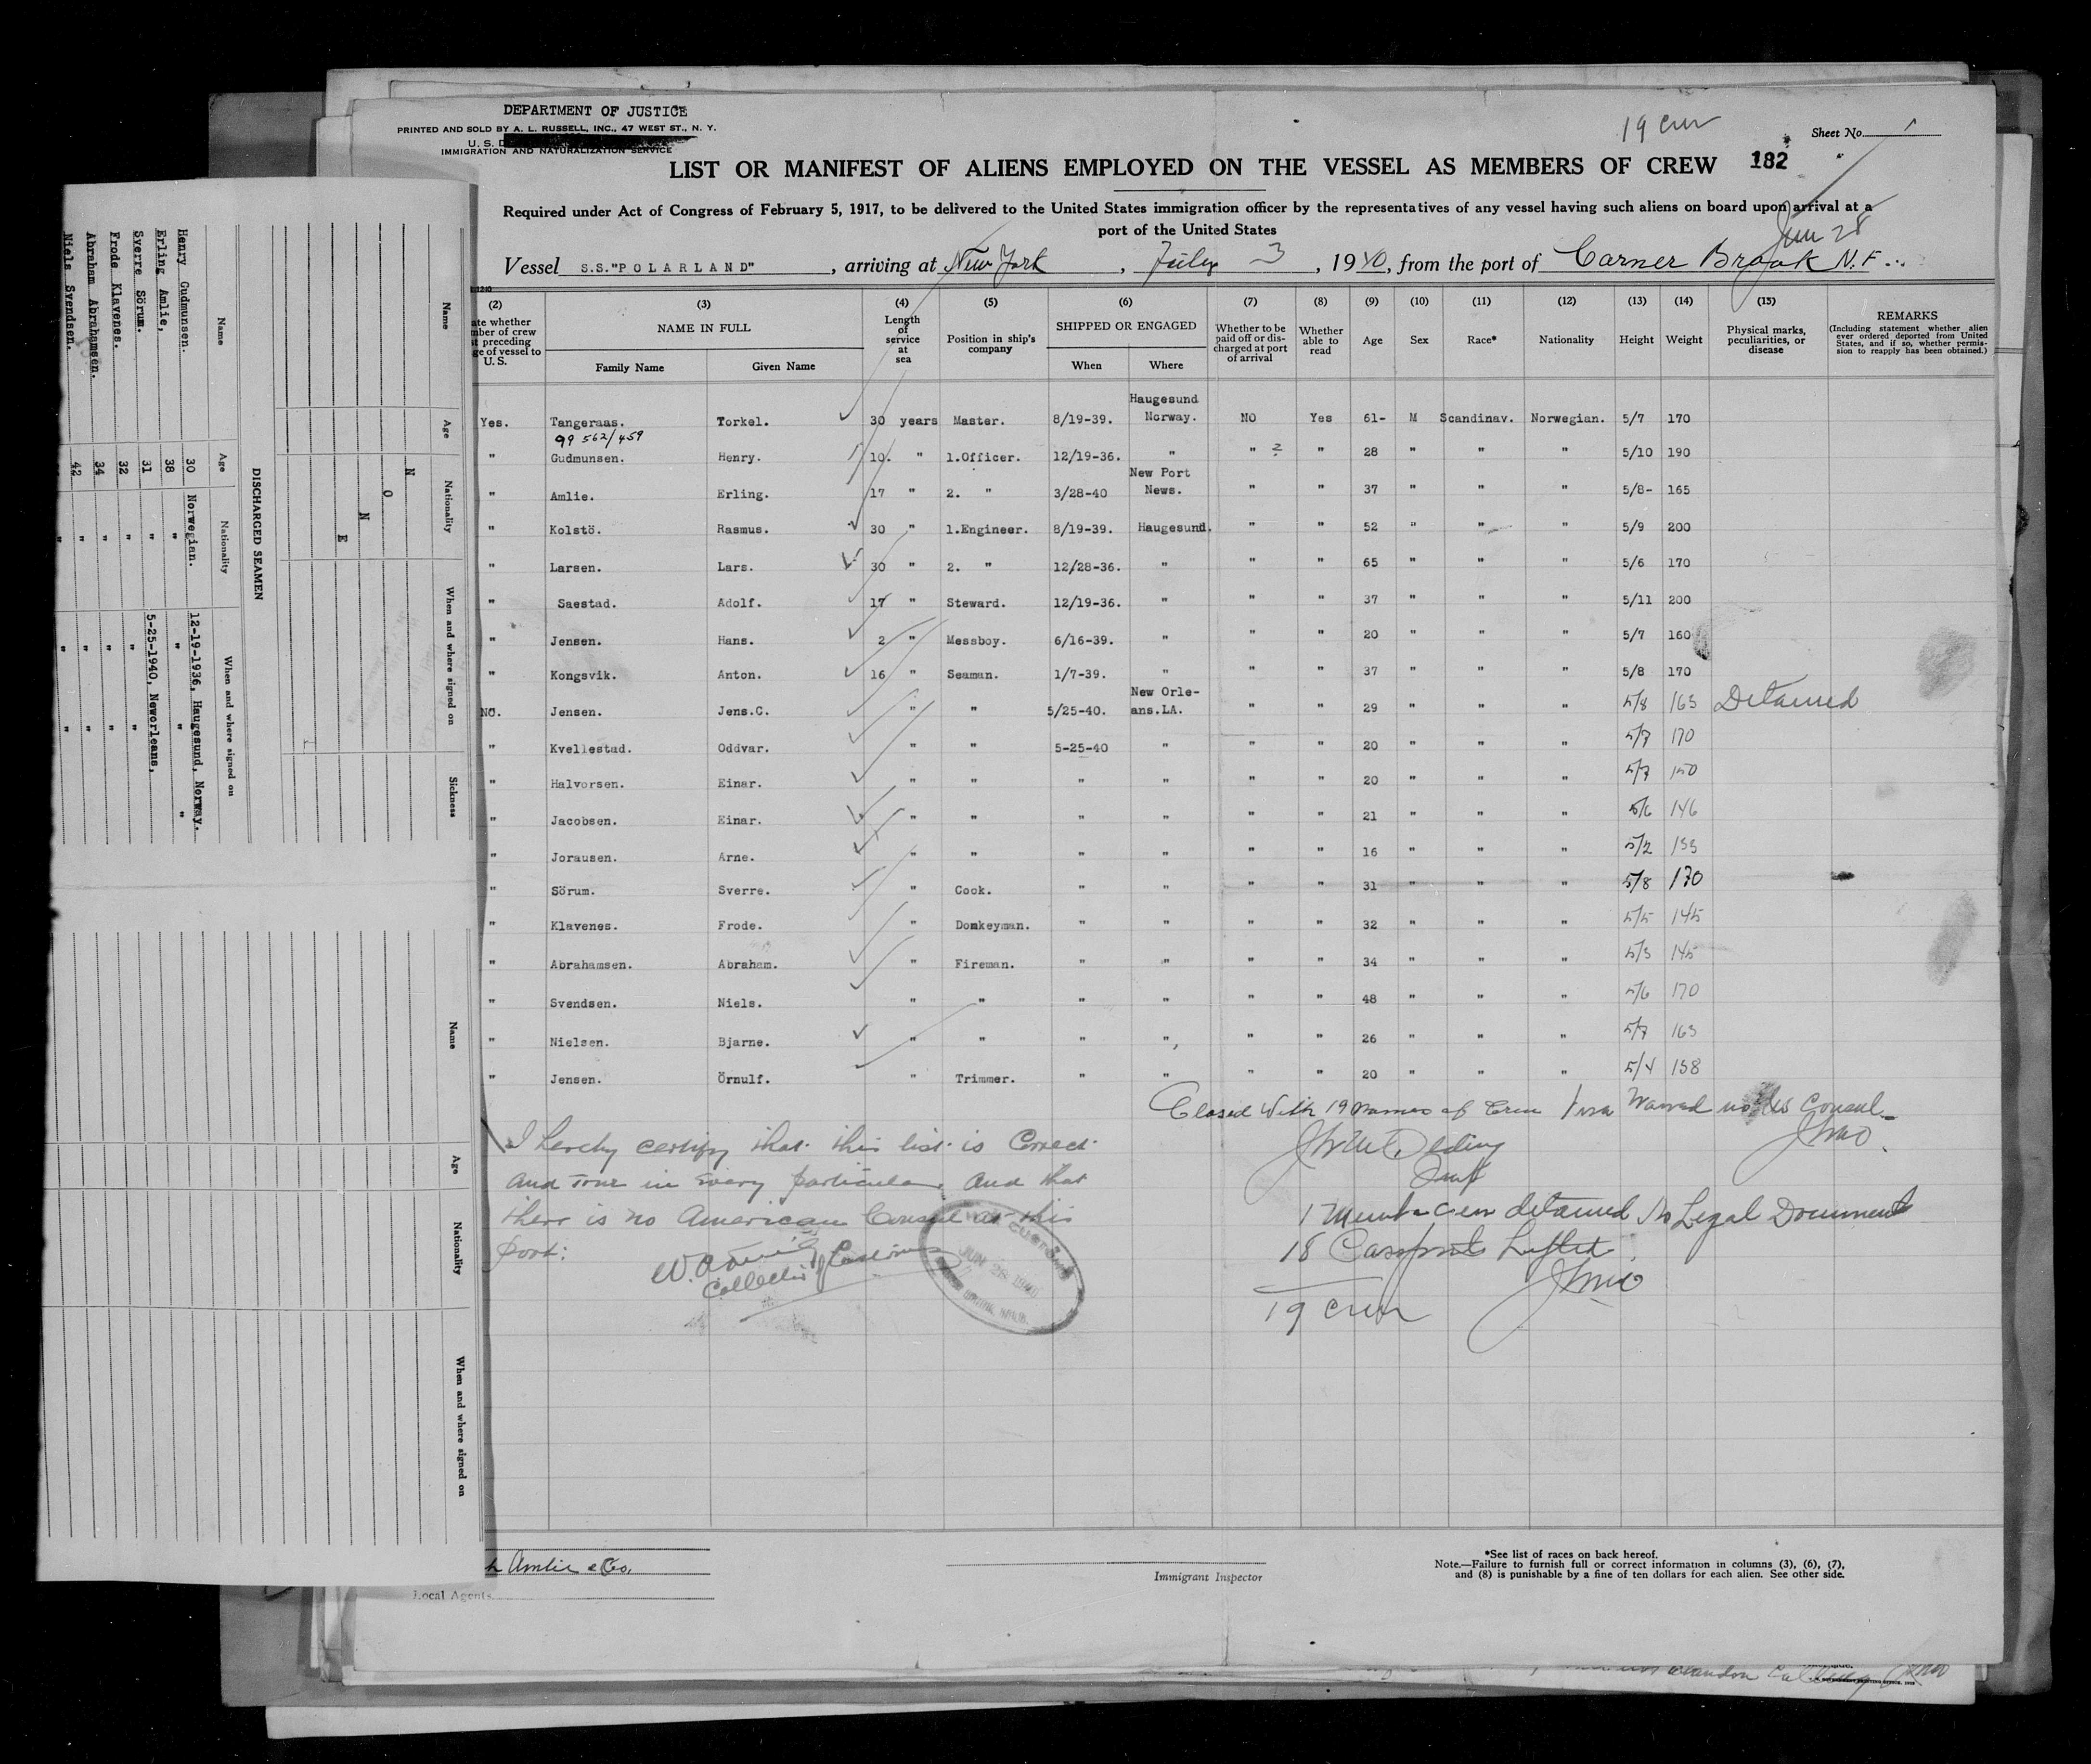 DEPARTMENT OF JUSTICE
PRINTED AND SOLD BY A. L. RUSSELL, INC., 47 WEST ST., N. Y.
U. S. D
IMMIGRATION AND NATURALIZATION SERVICE
19 crew
Sheet No. 1
LIST OR MANIFEST OF ALIENS EMPLOYED ON THE VESSEL AS MEMBERS OF CREW 182
Required under Act of Congress of February 5, 1917, to be delivered to the United States immigration officer by the representatives of any vessel having such aliens on board upon arrival at a
port of the United States
Jun 28
Vessel S.S."POLARLAND", arriving at New York, July 3, 1940, from the port of Corner Brook N.F.
(2) (3) (4) (5) (6) (7) (8) (9) (10) (11) (12) (13) (14) (15)
NAME IN FULL Family Name Given Name
Length of service at sea
Position in ship's company
SHIPPED OR ENGAGED When Where
Whether to be paid off or discharged at port of arrival
Whether able to read
Age Sex Race* Nationality Height Weight
Physical marks, peculiarities, or disease
REMARKS
(Including statement whether alien ever ordered deported from United States, and if so, whether permission to reapply has been obtained.)
Yes. Tangeraas. Torkel. 30 years Master. 8/19-39. Haugesund Norway. NO Yes 61- M Scandinav. Norwegian. 5/7 170
99 562/459
" Gudmunsen. Henry. 10. " 1.Officer. 12/19-36. " " " 28 " " " 5/10 190
" Amlie. Erling. 17 " 2. " 3/28-40 New Port News. " " 37 " " " 5/8- 165
" Kolstö. Rasmus. 30 " 1.Engineer. 8/19-39. Haugesund. " " 52 " " " 5/9 200
" Larsen. Lars. 30 " 2. " 12/28-36. " " " 65 " " " 5/6 170
" Saestad. Adolf. 17 " Steward. 12/19-36. " " " 37 " " " 5/11 200
" Jensen. Hans. 2 " Messboy. 6/16-39. " " " 20 " " " 5/7 160
" Kongsvik. Anton. 16 " Seaman. 1/7-39. " " " 37 " " " 5/8 170
NO. Jensen. Jens.C. " " 5/25-40. New Orleans.LA. " " 29 " " " 5/8 165 Detained
" Kvellestad. Oddvar. " " 5-25-40 " " " 20 " " " 5/7 170
" Halvorsen. Einar. " " " " " " 20 " " " 5/7 150
" Jacobsen. Einar. " " " " " " 21 " " " 5/6 146
" Jorausen. Arne. " " " " " " 16 " " " 5/2 135
" Sörum. Sverre. " Cook. " " " " 31 " " " 5/8 170
" Klavenes. Frode. " Donkeyman. " " " " 32 " " " 5/5 145
" Abrahamsen. Abraham. " Fireman. " " " " 34 " " " 5/3 145
" Svendsen. Niels. " " " " " " 48 " " " 5/6 170
" Nielsen. Bjarne. " " " " " " 26 " " " 5/7 165
" Jensen. Örnulf. " Trimmer. " " " " 20 " " " 5/4 138
Closed with 19 names of Crew Visa Waived no Consul
I hereby certify that this list is Correct
and True in Every particular and that
there is no American Consul at this
port:
Collector of Customs
JUN 28 1940
1 member crew detained No Legal Documents
18 Passports Lifted
19 crew
Amlie & Co.
Local Agents
Immigrant Inspector
*See list of races on back hereof.
Note.—Failure to furnish full or correct information in columns (3), (6), (7),
and (8) is punishable by a fine of ten dollars for each alien. See other side.
Name Age Nationality When and where signed on Sickness
N O N E
DISCHARGED SEAMEN
Name Age Nationality When and where signed on
Henry Gudmunsen. 30 Norwegian. 12-19-1936, Haugesund, Norway.
Erling Amlie, 38 " " " "
Sverre Sörum. 31 " 5-25-1940, Neworleans,
Frode Klavenes. 32 " " "
Abraham Abrahamsen. 34 " " "
Niels Svendsen. 42 " " "
Name Age Nationality When and where signed on